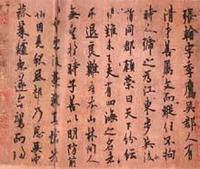 張翰字季鷹吳郡人有
清才善屬文而縱任不拘
時人號之為江東步兵後
謂同郡顧榮曰天下紛紜
難未已夫有四海之名者
求退良難吾本山林間人
無望於時子善以明防前
因見秋風起乃思吳中
菜鱸魚遂命駕而歸